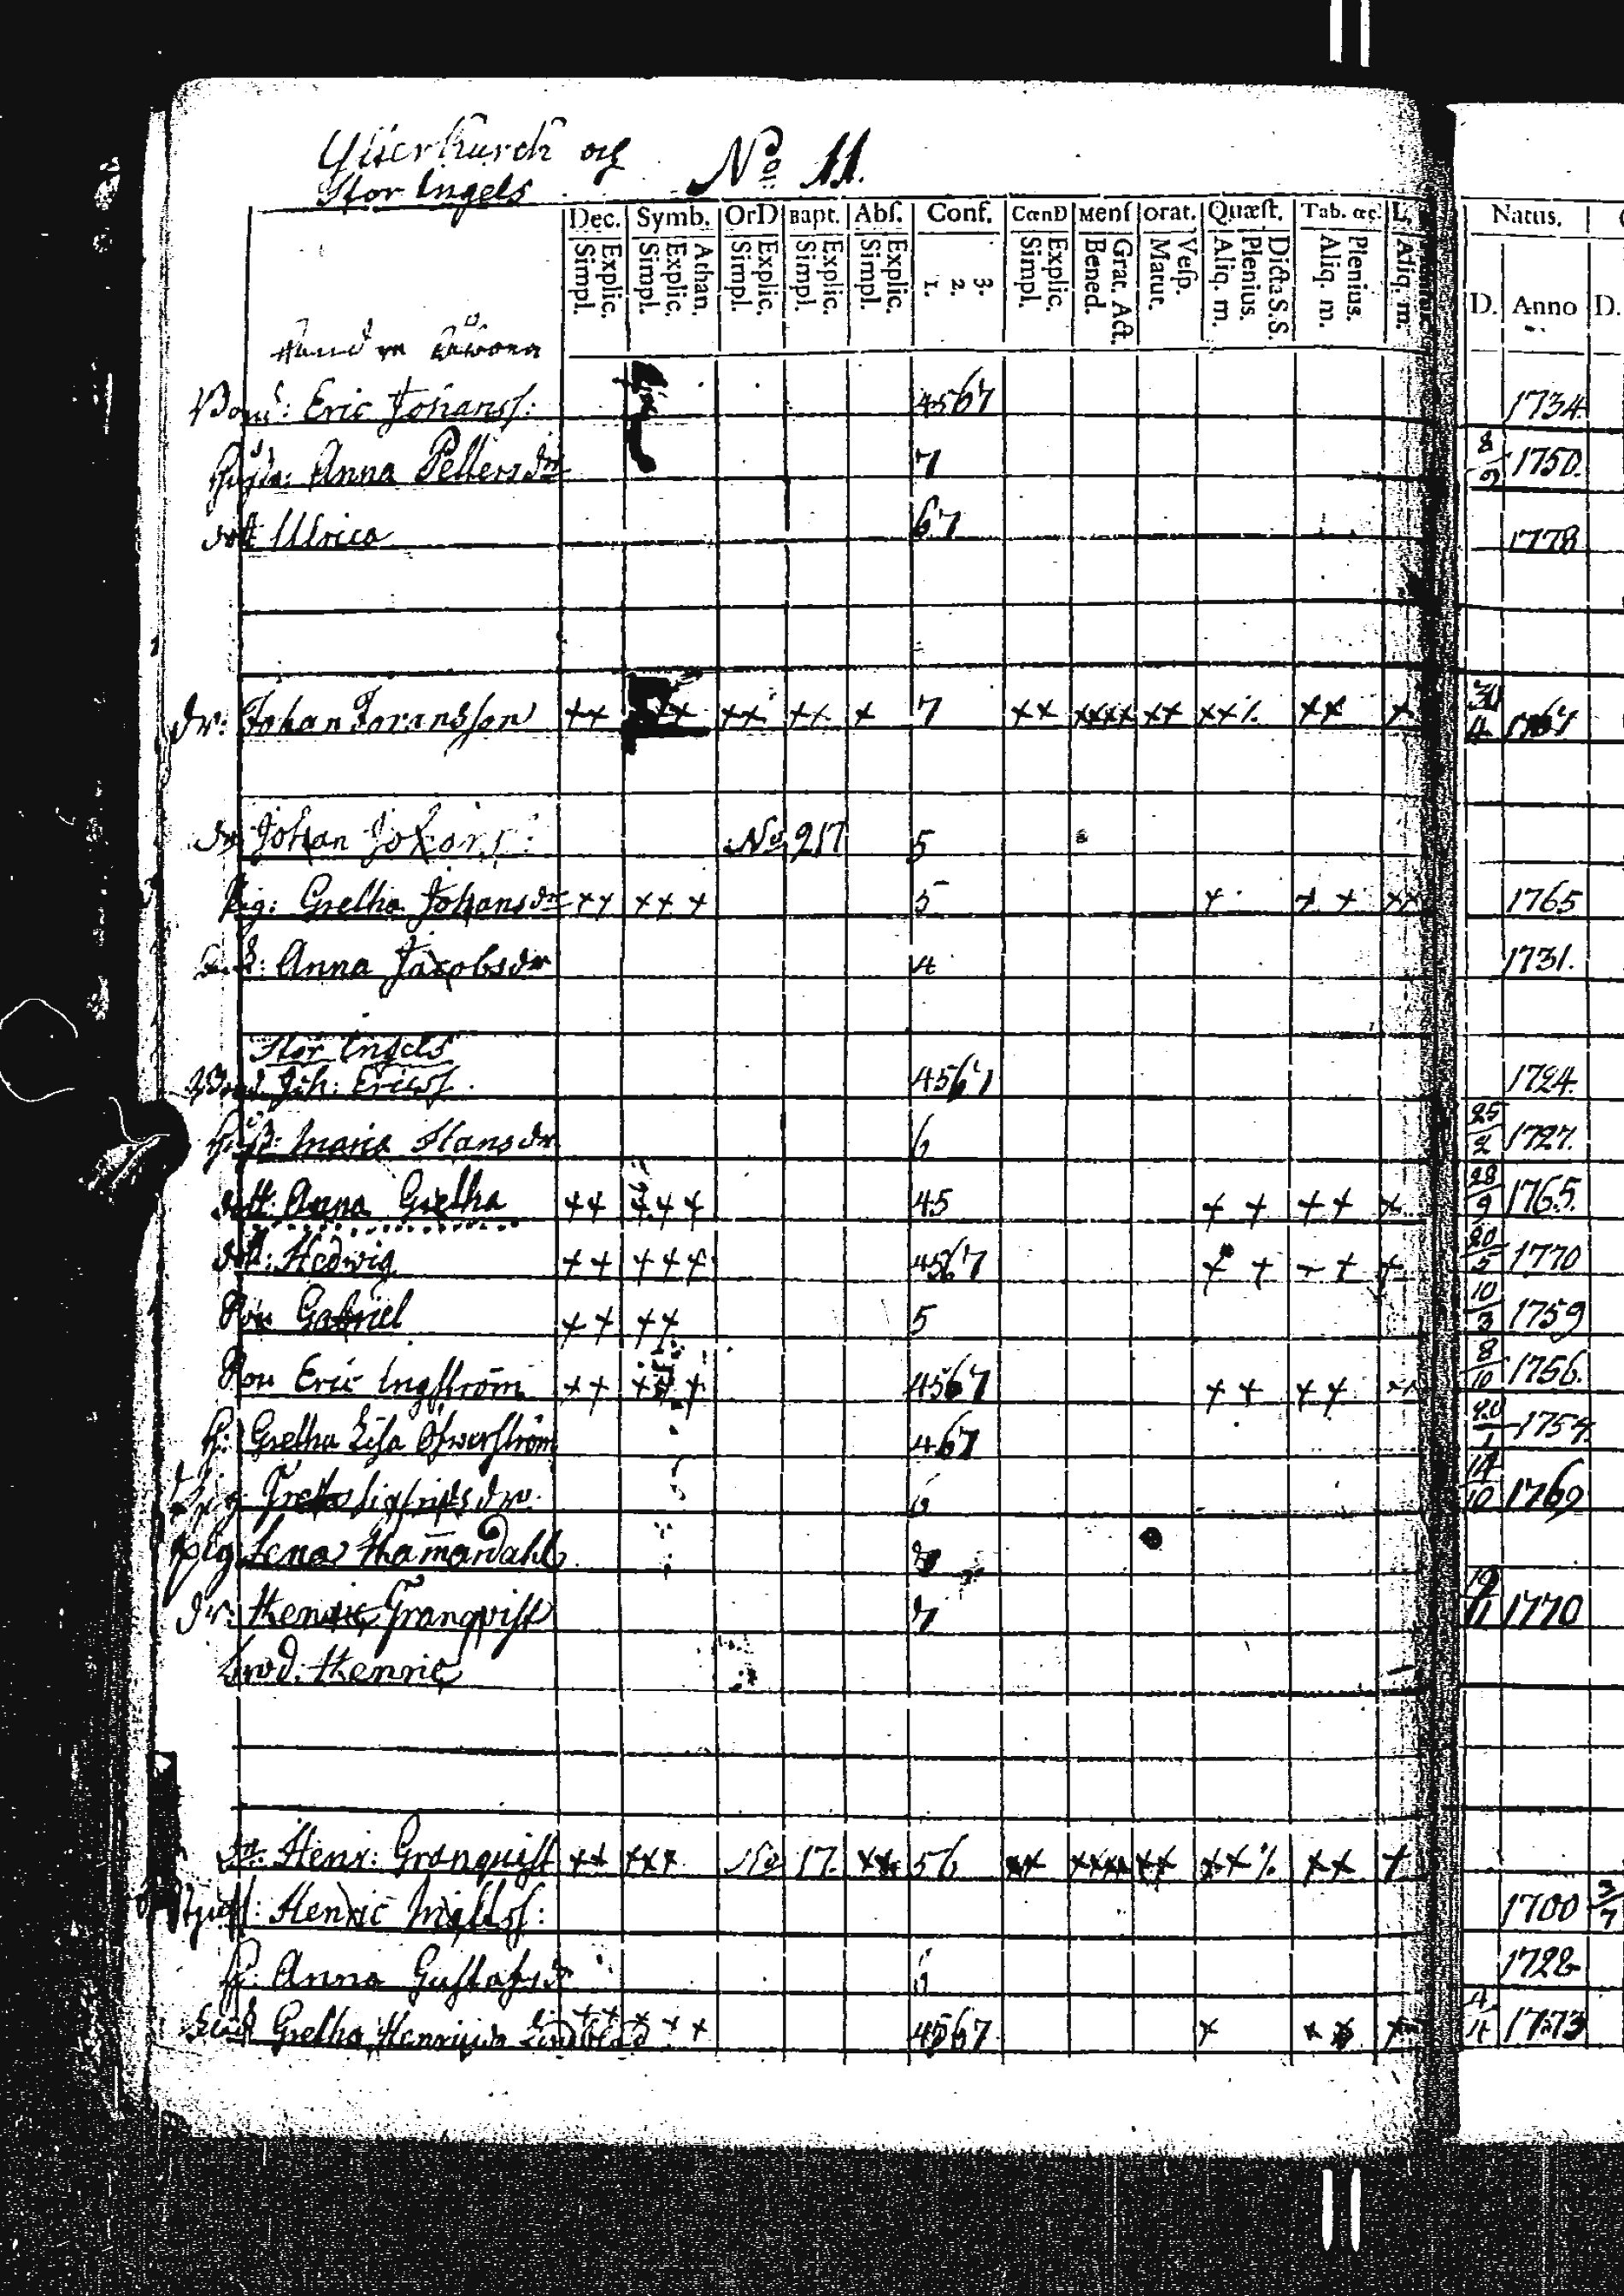 och No 11.
Stor Ingels
Dec. Symb. OrD Bapt. Abſ. Conf. CœnD Menſ orat. Quæſt. Tab. œc. L. Natus.
Simpl. Explic. Simpl. Explic. Athan. Simpl. Explic. Simpl. Explic. Simpl. Explic. 1. 2. 3. Simpl. Explic. Bened. Grat. Act. Matut. Veſp. Aliq. m. Plenius. Dicta S.S. Aliq. m. Plenius. Aliq. m. D. Anno D.
Bond: Eric Johanſſ: 4567 1734
Anna Pettersdr 7 8/9 1750.
dott Ulrica 67 1778
dr: Johan Joransſon ++ ++ ++ ++ + 7 ++ ++++ ++ ++% ++ + 1767
dr Johan Johansſ: No 217 5
Pig: Gretha Johansdr ++ +++ 5 + + + ++ 1765
Anna Jacobsdr 4 1731.
Stor Ingels
Bond. Joh: Ericsſ. 4567 1724.
Maria Hansdr 6 25/2 1727.
dott: Anna Gretha ++ +++ 45 + + ++ + 28/9 1765.
dott: Hedwig ++ +++ 4567 + + + + + 20/5 1770
Son Gabriel ++ ++ 5 10/3 1759
Son Eric Ingſtröm ++ +++ 4567 ++ ++ ++ 8/10 1756.
H: Gretha Liſa 467 20/1 1757.
Greta Sigfridsdr 6 14/10 1769
Pig Lena
Dr: Henric Granqviſt 7 19/11 1770
Henric
Dr: Henr: Granquiſt ++ +++ No 17. ++ 56 ++ ++++ ++ ++% ++ + 
Henric 1700 3/7
H: Anna Guſtafsdr 6 1728
Gretha Henricsdr Lindblad ++ + + + 4567 + + + + 4/4 1773